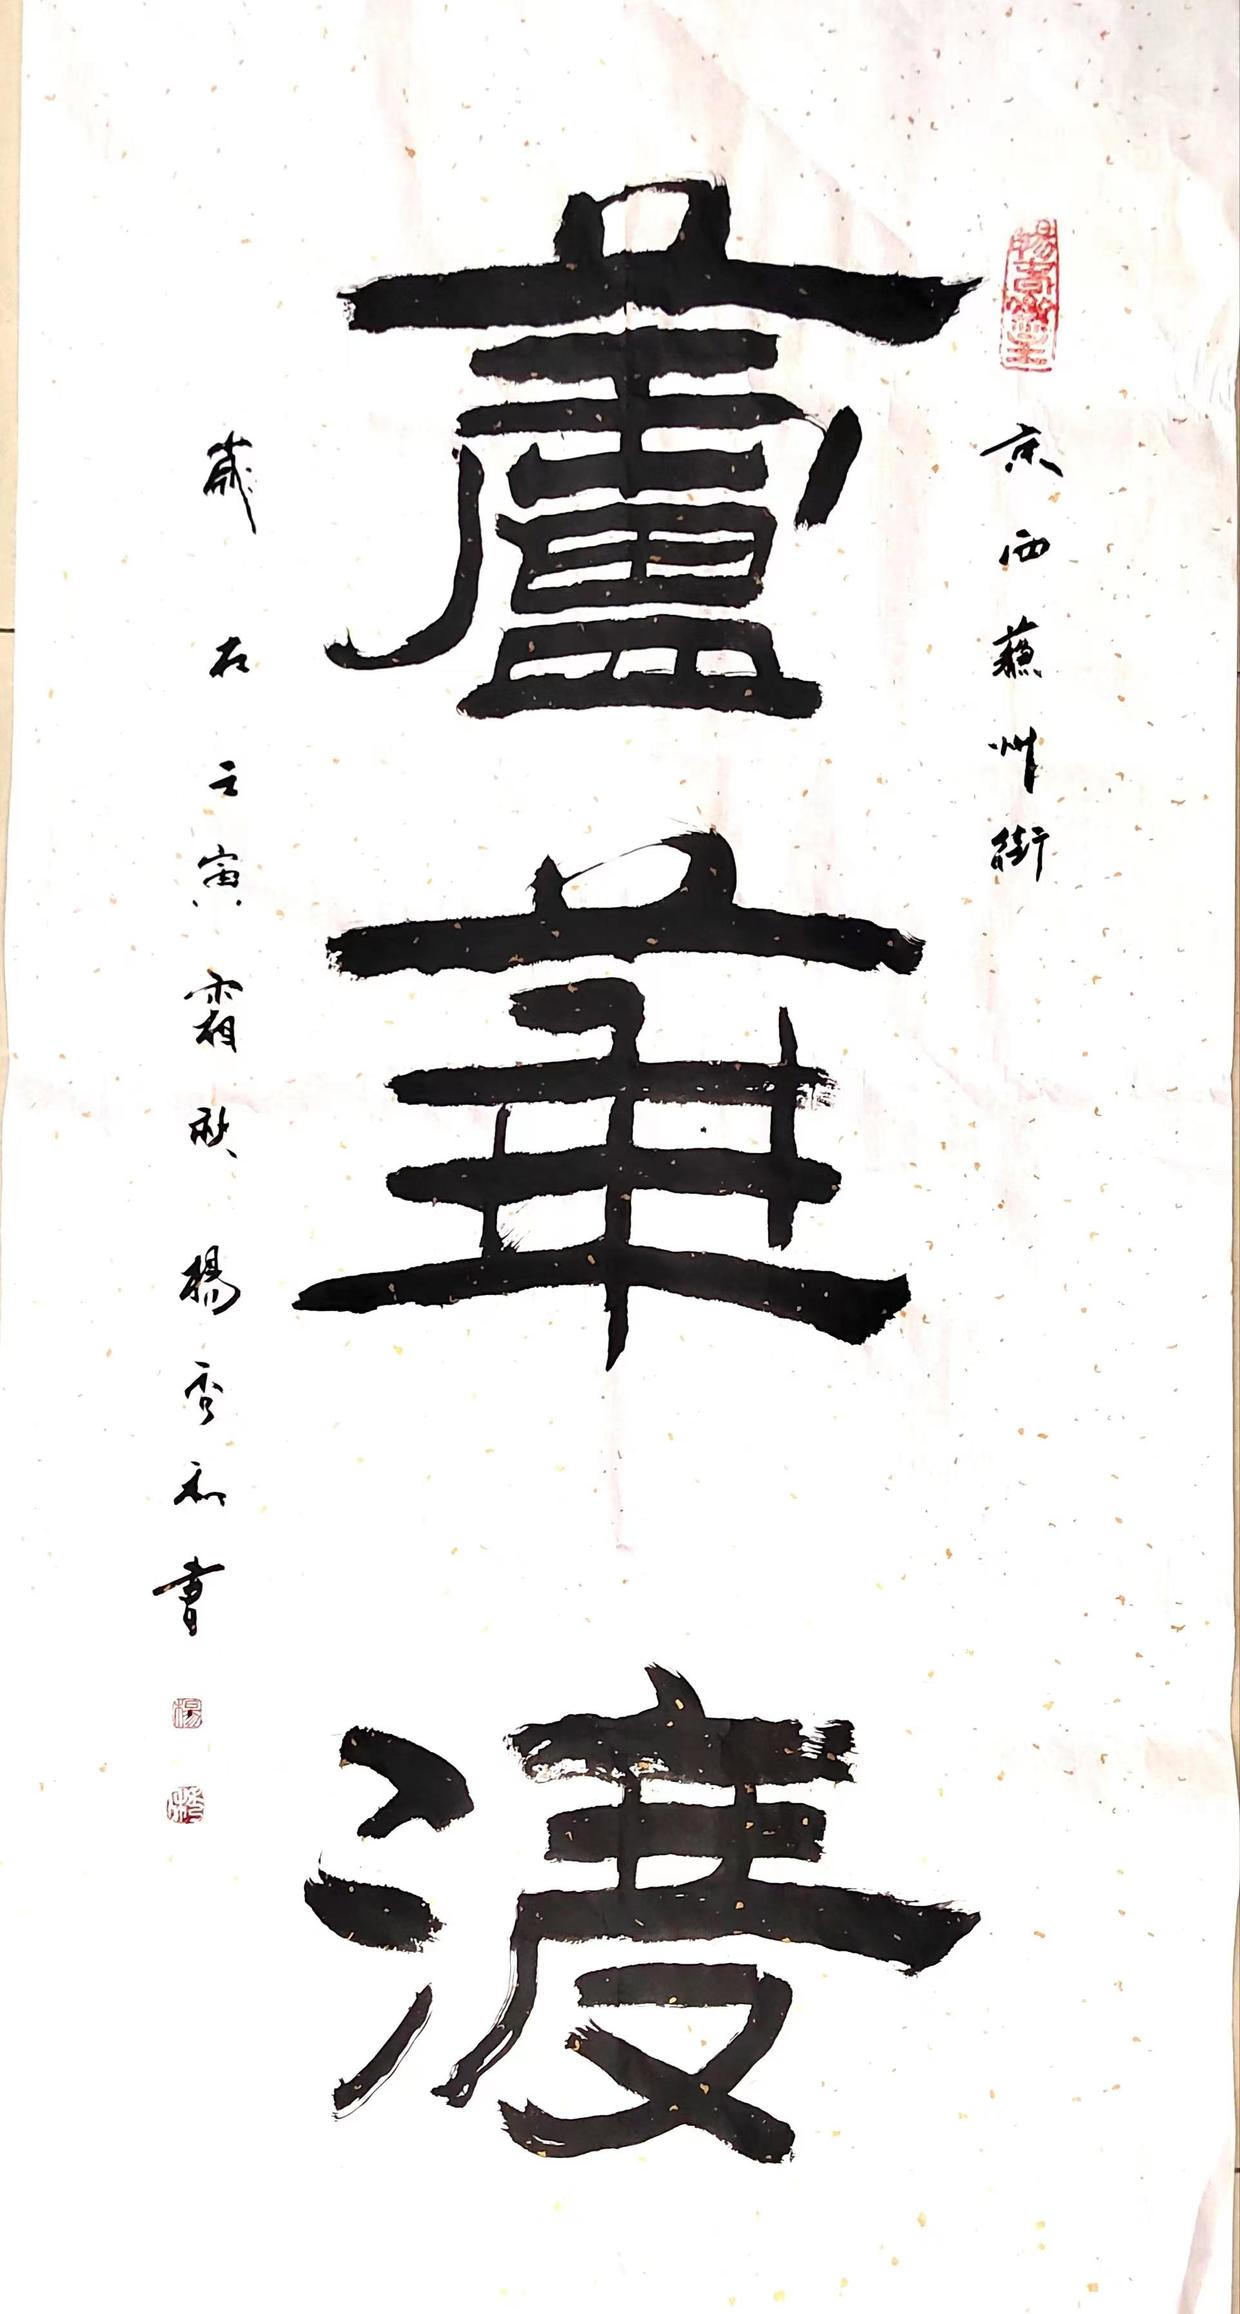 京西蘇州街
蘆華渡
歲在壬寅霜秋楊秀和書
楊